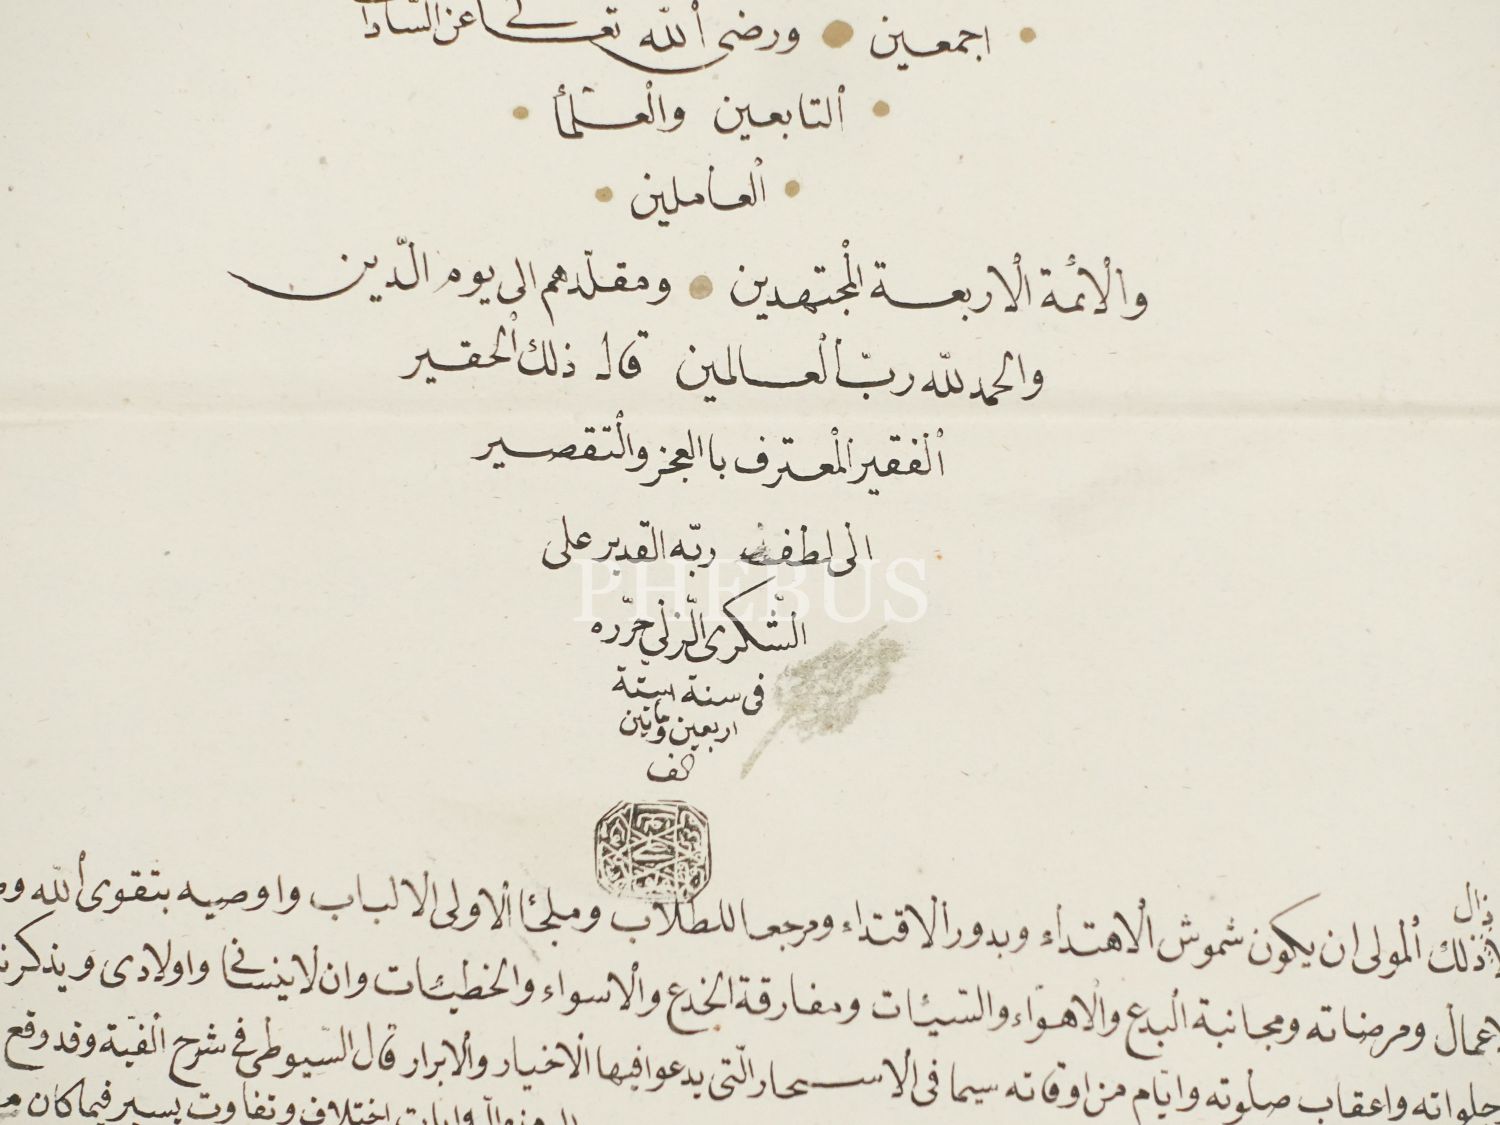 اجمعين ورضى الله تعالى عن السادا
التابعين والعلمأ
العاملين
والائمة الاربعة المجتهدين ومقلدهم الى يوم الدّين
والحمد لله ربّ العالمين قال ذلك الحقير
الفقير المعترف با العجز والتقصير
الى لطف ربّه القدير على
PHEBUS
الشكرى حرّره
فى سنة ستة
اربعين ومأتين
الف
ذال
ذلك المولى ان يكون شموش الاهتداء وبدور الاقتداء ومرجعا للطلاب وملجئا لاولى الالباب واوصيه بتقوى الله
ومرضاته ومجانبة البدع والاهواء والسيئات ومفارقة الخدع والاسواء والخطيئات وان لا ينسانى واولادى ويذكرنا
جلواته واعقاب صلوته وايّام من اوقاته سيما فى الاسحار الّتى يدعوا فيها الاخيار والابرار قال السيوطى فى شرح الفيّة وقد وقع
اختلاف وتفاوت يسير فيما كان